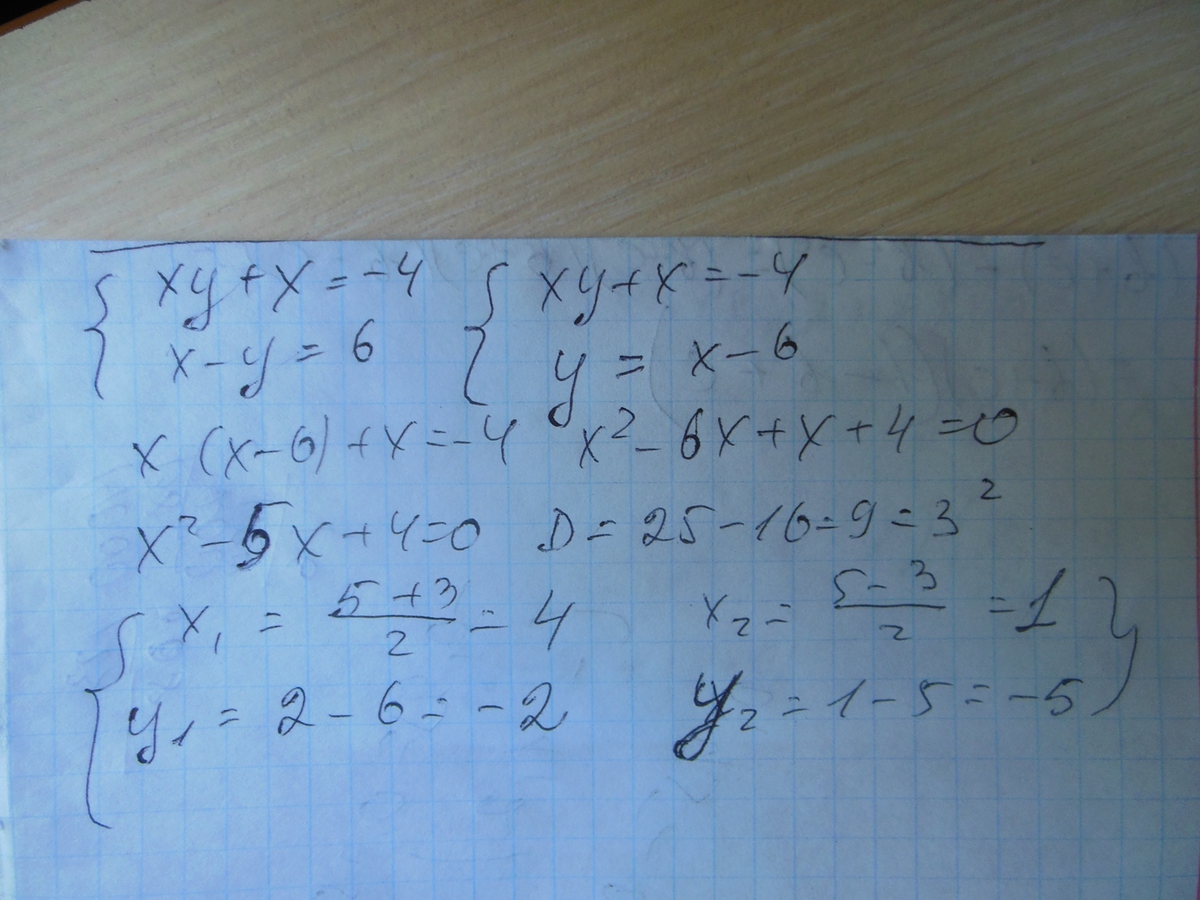 { xy + x = -4 { xy + x = -4
x - y = 6 y = x - 6
x (x - 6) + x = -4 x² - 6x + x + 4 = 0
x² - 5x + 4 = 0 D = 25 - 16 = 9 = 3²
{ x₁ = (5 + 3)/2 = 4 x₂ = (5 - 3)/2 = 1 }
y₁ = 2 - 6 = -2 y₂ = 1 - 5 = -5